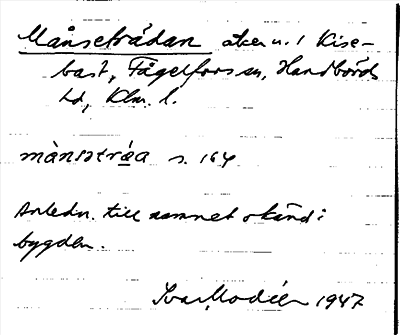 Månseträdan åker u. 1 Kise-
bast, Fågelfors sn, Handbörds
hd, Klm. l.
mànsətrɛ́a s. 164
Anledn. till namnet okänd i
bygden.
Ivar Modéer 1947